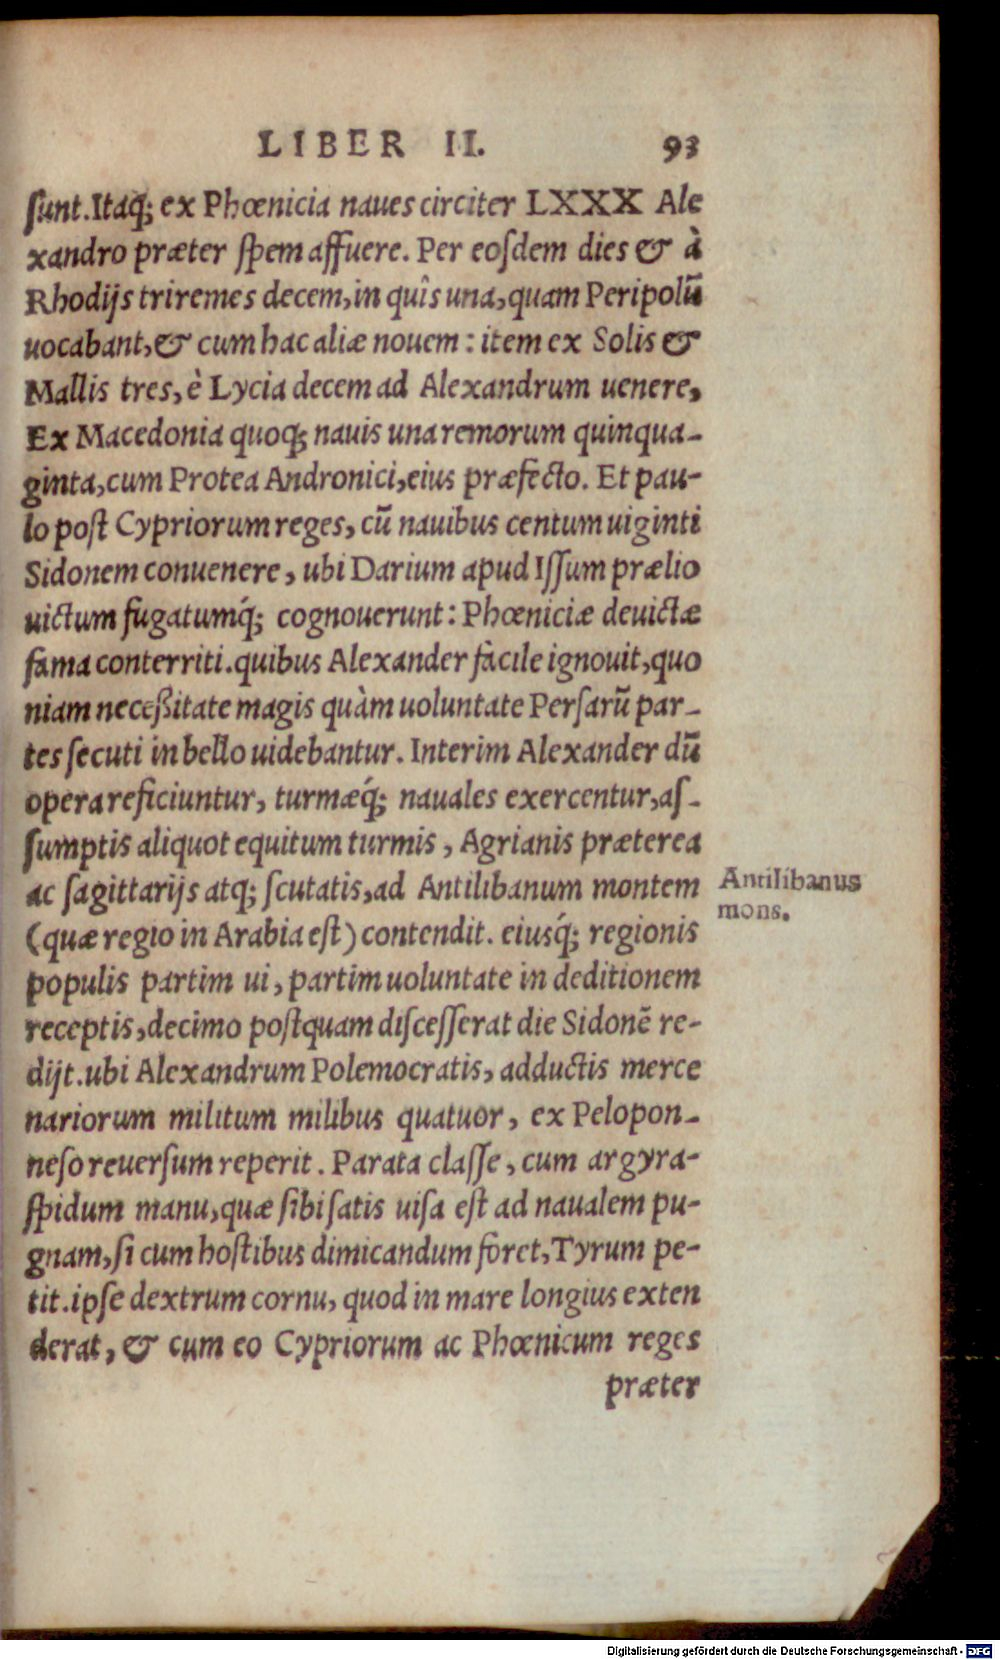 LIBER II. 93
sunt. Itaq; ex Phœnicia naues circiter LXXX Ale
xandro præter spem affuere. Per eosdem dies & à
Rhodijs triremes decem, in quîs una, quam Peripolũ
uocabant, & cum hac aliæ nouem: item ex Solis &
Mallis tres, è Lycia decem ad Alexandrum uenere,
Ex Macedonia quoq; nauis una remorum quinqua-
ginta, cum Protea Andronici, eius præfecto. Et pau-
lo post Cypriorum reges, cũ nauibus centum uiginti
Sidonem conuenere, ubi Darium apud Issum prælio
uictum fugatumq́; cognouerunt: Phœniciæ deuictæ
fama conterriti. quibus Alexander fàcile ignouit, quo
niam neceßitate magis quàm uoluntate Persarũ par-
tes secuti in bello uidebantur. Interim Alexander dũ
opera reficiuntur, turmæq́; nauales exercentur, as-
sumptis aliquot equitum turmis, Agrianis præterea
ac sagittarijs atq; scutatis, ad Antilibanum montem
(quæ regio in Arabia est) contendit. eiusq́; regionis
populis partim ui, partim uoluntate in deditionem
receptis, decimo postquam discesserat die Sidonẽ re-
dijt. ubi Alexandrum Polemocratis, adductis merce
nariorum militum milibus quatuor, ex Pelopon-
neso reuersum reperit. Parata classe, cum argyra-
spidum manu, quæ sibi satis uisa est ad naualem pu-
gnam, si cum hostibus dimicandum foret, Tyrum pe-
tit. ipse dextrum cornu, quod in mare longius exten
derat, & cum eo Cypriorum ac Phœnicum reges
præter
Antilibanus
mons.
Digitalisierung gefördert durch die Deutsche Forschungsgemeinschaft - DFG